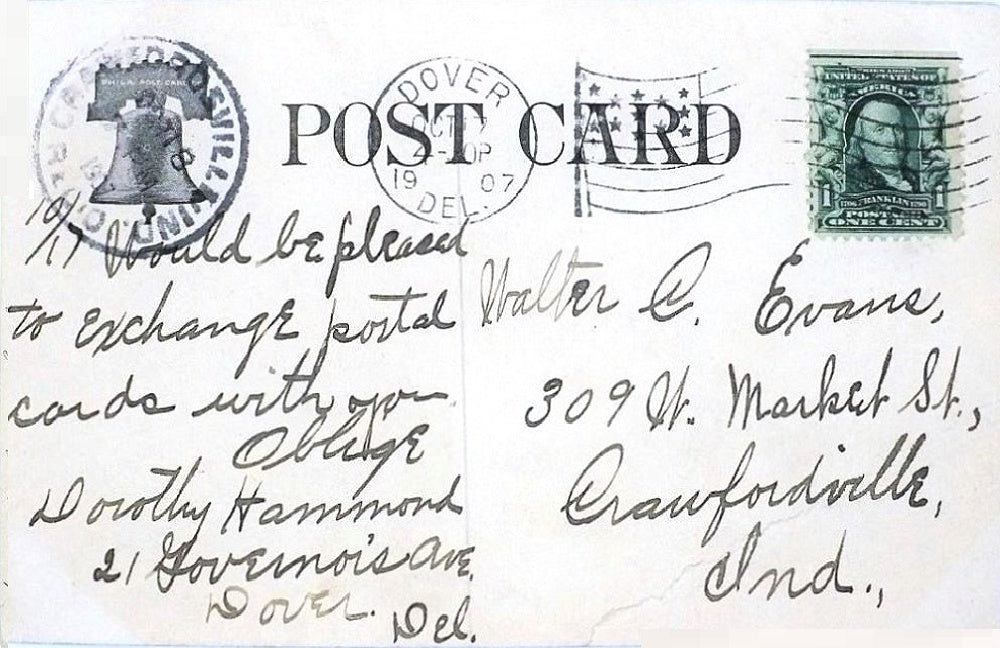 CRAWFORDSVILLE IND
PHILA. POST CARD
POST CARD
DOVER
OCT 17
4-30P
1907
DEL.
UNITED STATES OF
AMERICA
1 FRANKLIN 1
POSTAGE
ONE CENT
10/17 Would be pleased
to exchange postal
cards with you.
Oblige
Dorothy Hammond
21 Governor's Ave.
Dover.
Del.
Walter C. Evans,
309 W. Market St.,
Crawfordville,
Ind.,